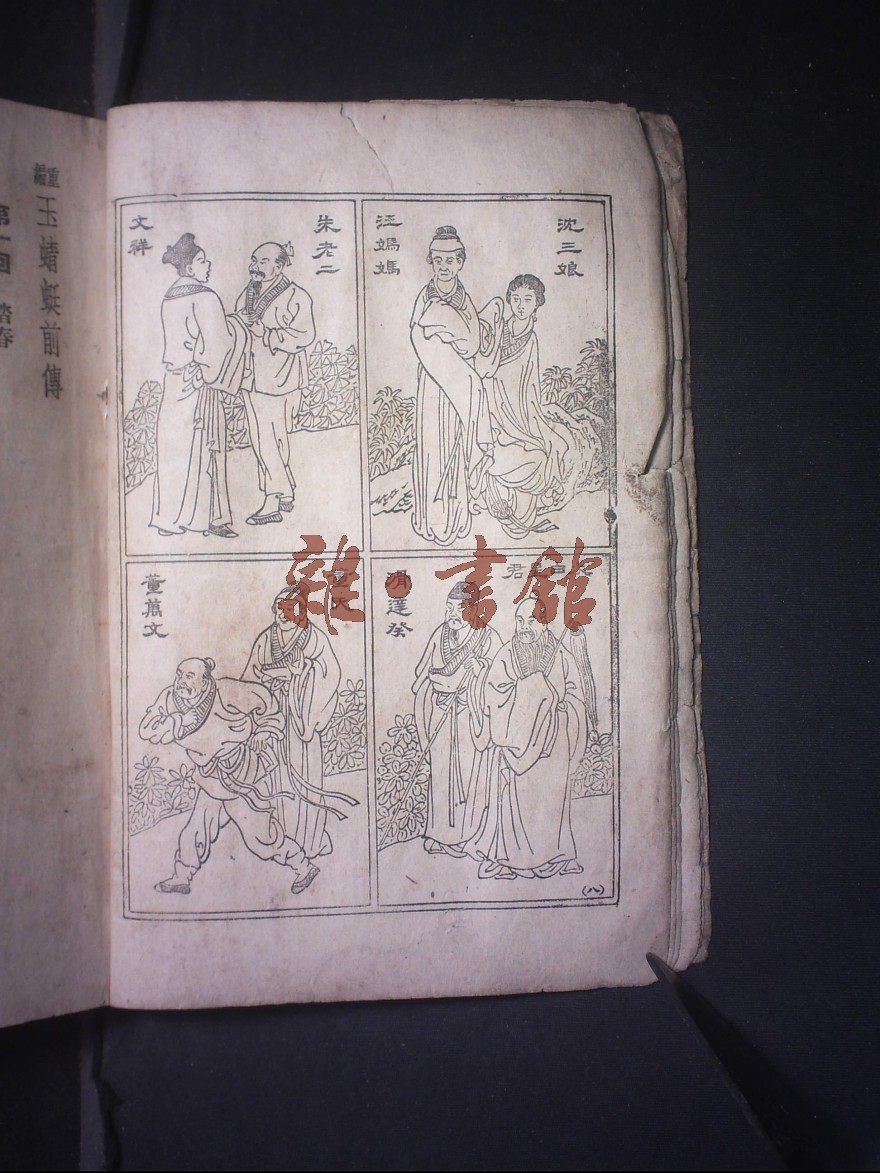 沈三娘
汪媽媽
朱老二
文祥
君
滑逹癸
董萬文
(八)
雜·書館
重編玉蜻蜓前傳
第一回 踏春